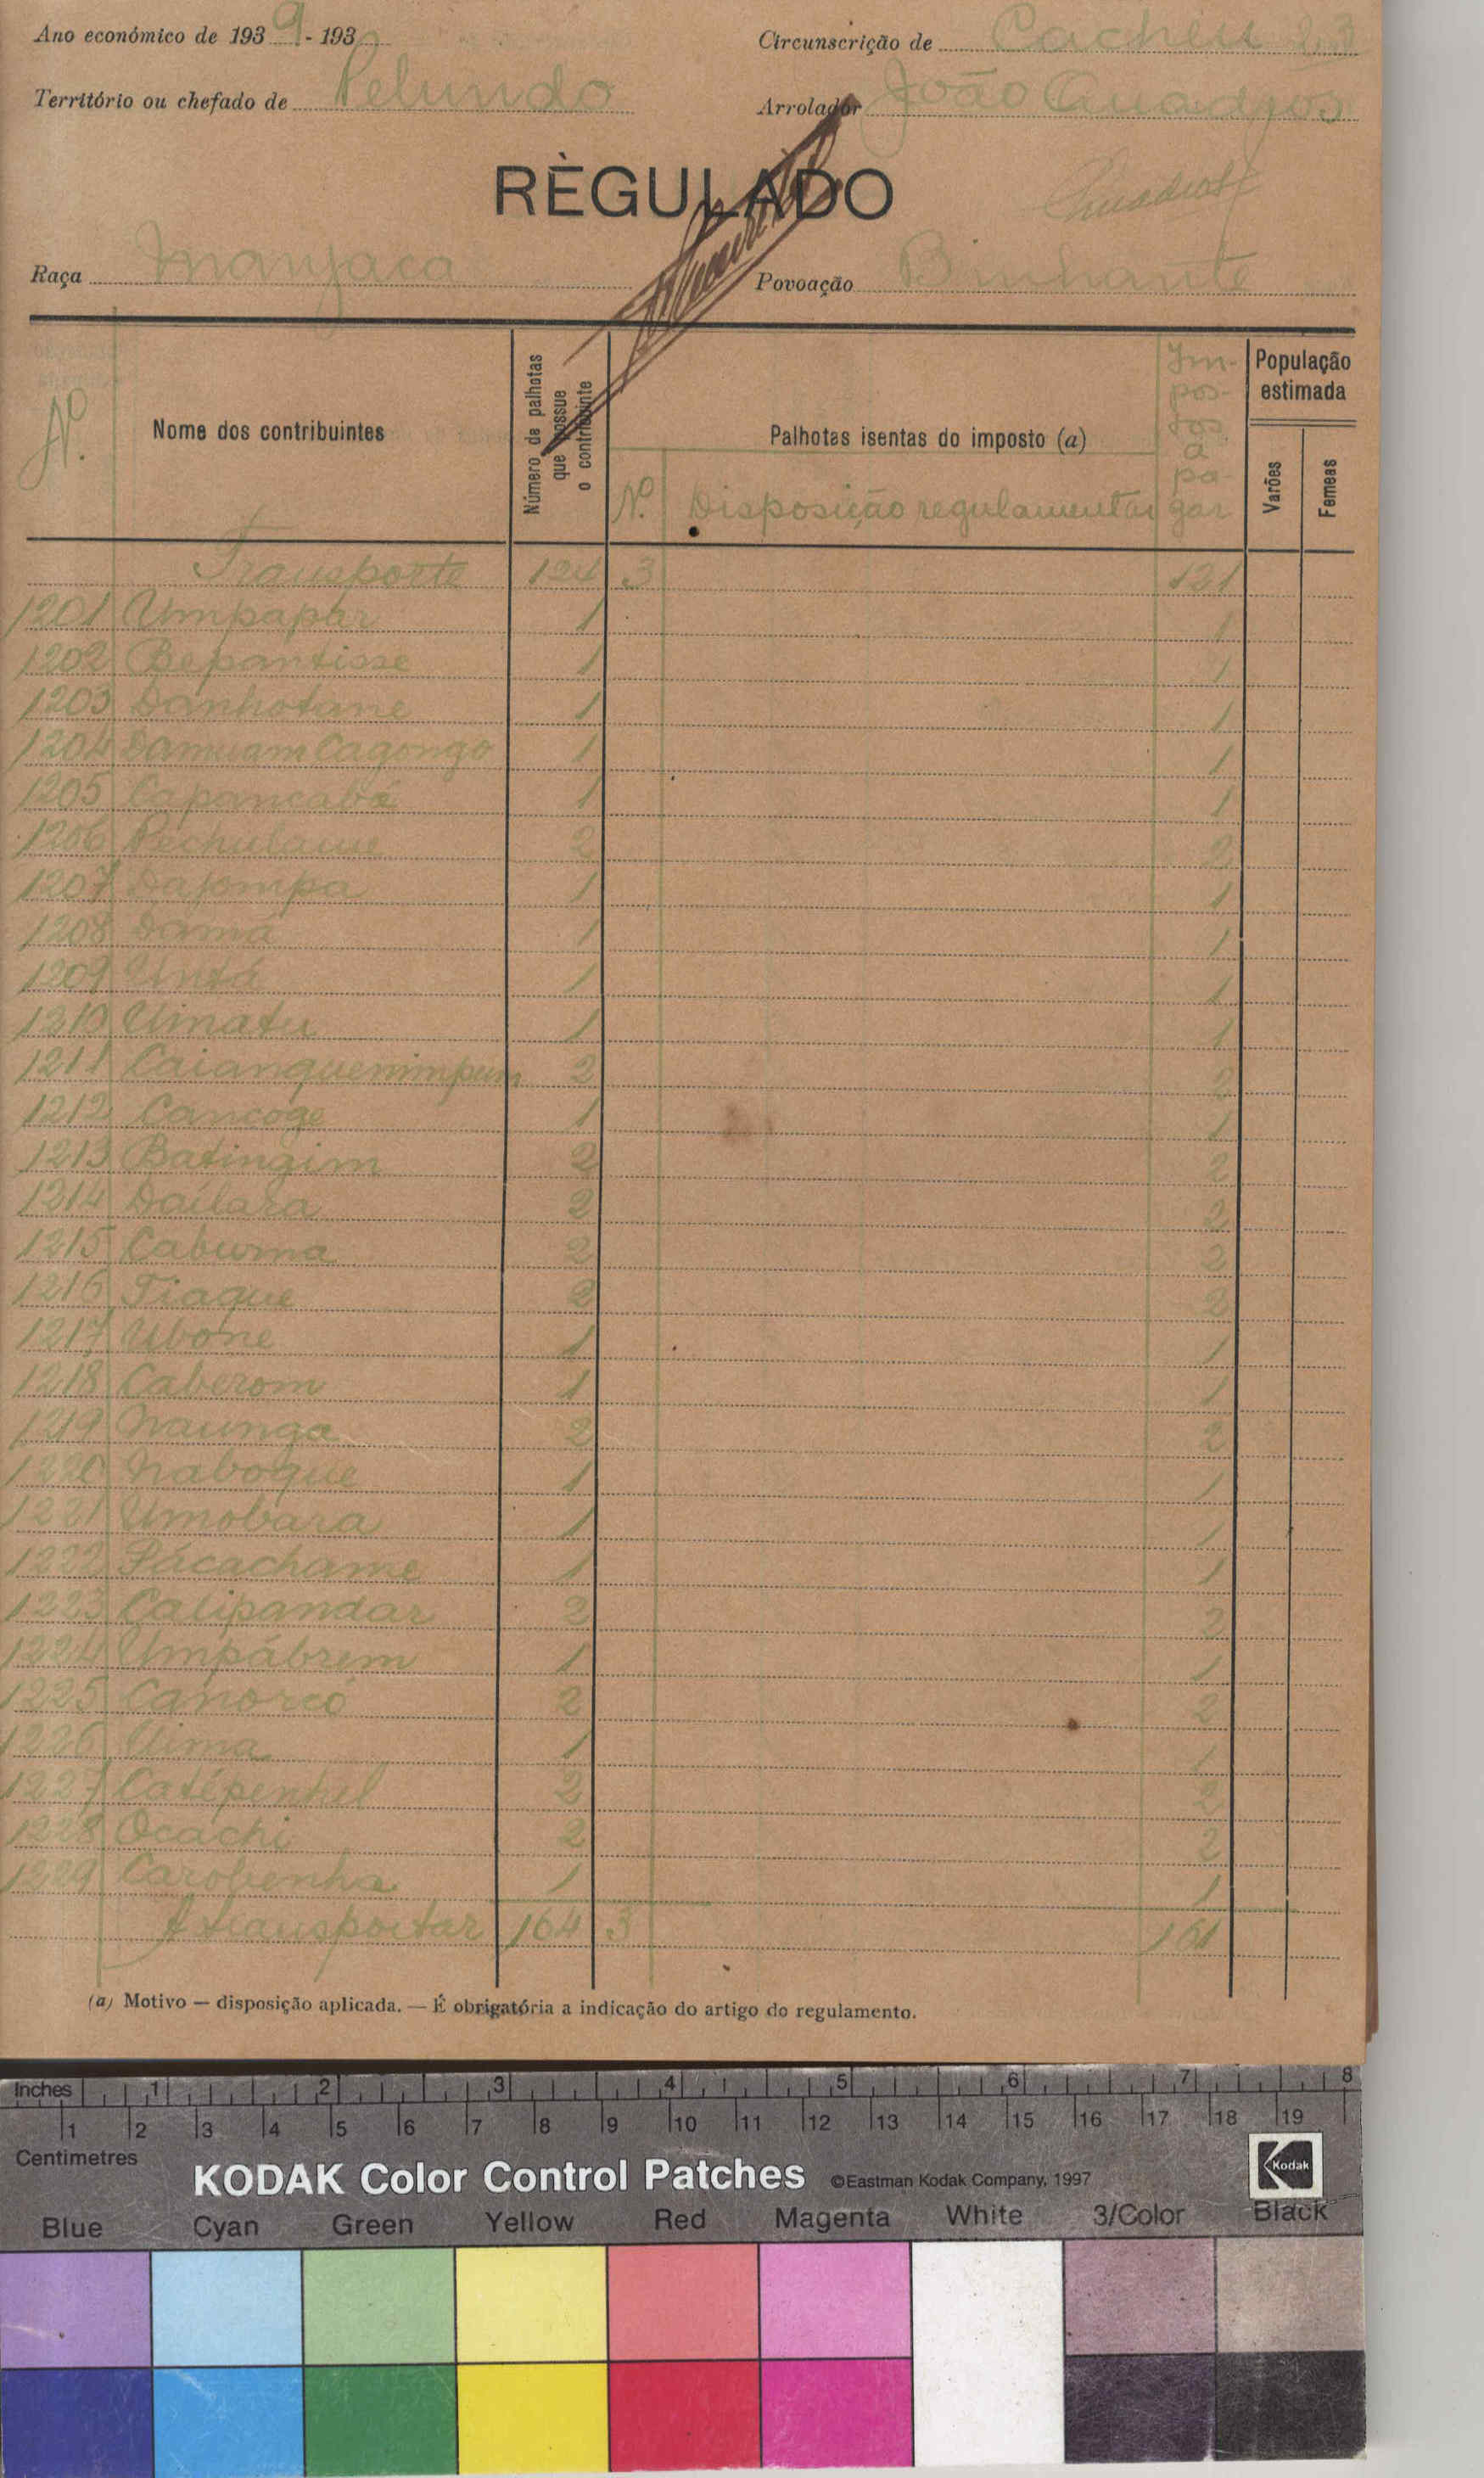 Ano económico de 1939 - 193
Circunscrição de Cacheu 23
Território ou chefado de Pelundo
Arrolador João
RÈGULADO
Raça Manjaca
Povoação Binhante
Nº
Nome dos contribuintes
Número de palhotas que possue o contribuinte
Palhotas isentas do imposto (a)
Nº Disposição regulamentar
Im-pos-tos a pa-gar
População estimada
Varões
Femeas
Transporte 124 3 121
1201 Umpapár 1 1
1202 Bepantisse 1 1
1203 Danhotane 1 1
1204 Damuam Cagongo 1 1
1205 Capancabá 1 1
1206 Pechulame 2 2
1207 Dajompa 1 1
1208 Damá 1 1
1209 Untá 1 1
1210 Uinatu 1 1
1211 Caianquenimpum 2 2
1212 Cancoge 1 1
1213 Batingim 2 2
1214 Dailara 2 2
1215 Cabuma 2 2
1216 Tiaque 2 2
1217 Ubone 1 1
1218 Caberom 1 1
1219 Naunga 2 2
1220 Naboque 1 1
1221 Umobara 1 1
1222 Pácachame 1 1
1223 Calipandar 2 2
1224 Umpábrem 1 1
1225 Canorcó 2 2
1226 Uima 1 1
1227 Catépenhel 2 2
1228 Ocachi 2 2
1229 Carobenha 1 1
A transportar 164 3 161
(a) Motivo — disposição aplicada. — É obrigatória a indicação do artigo do regulamento.
Inches 1 2 3 4 5 6 7 8
1 2 3 4 5 6 7 8 9 10 11 12 13 14 15 16 17 18 19
Centimetres
KODAK Color Control Patches ©Eastman Kodak Company, 1997 Kodak
Blue Cyan Green Yellow Red Magenta White 3/Color Black